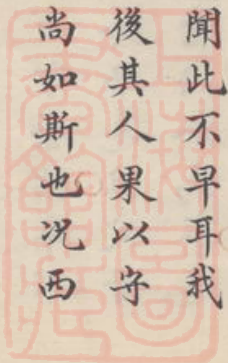 聞此不早耳我
後其人果以守
尚如斯也况西